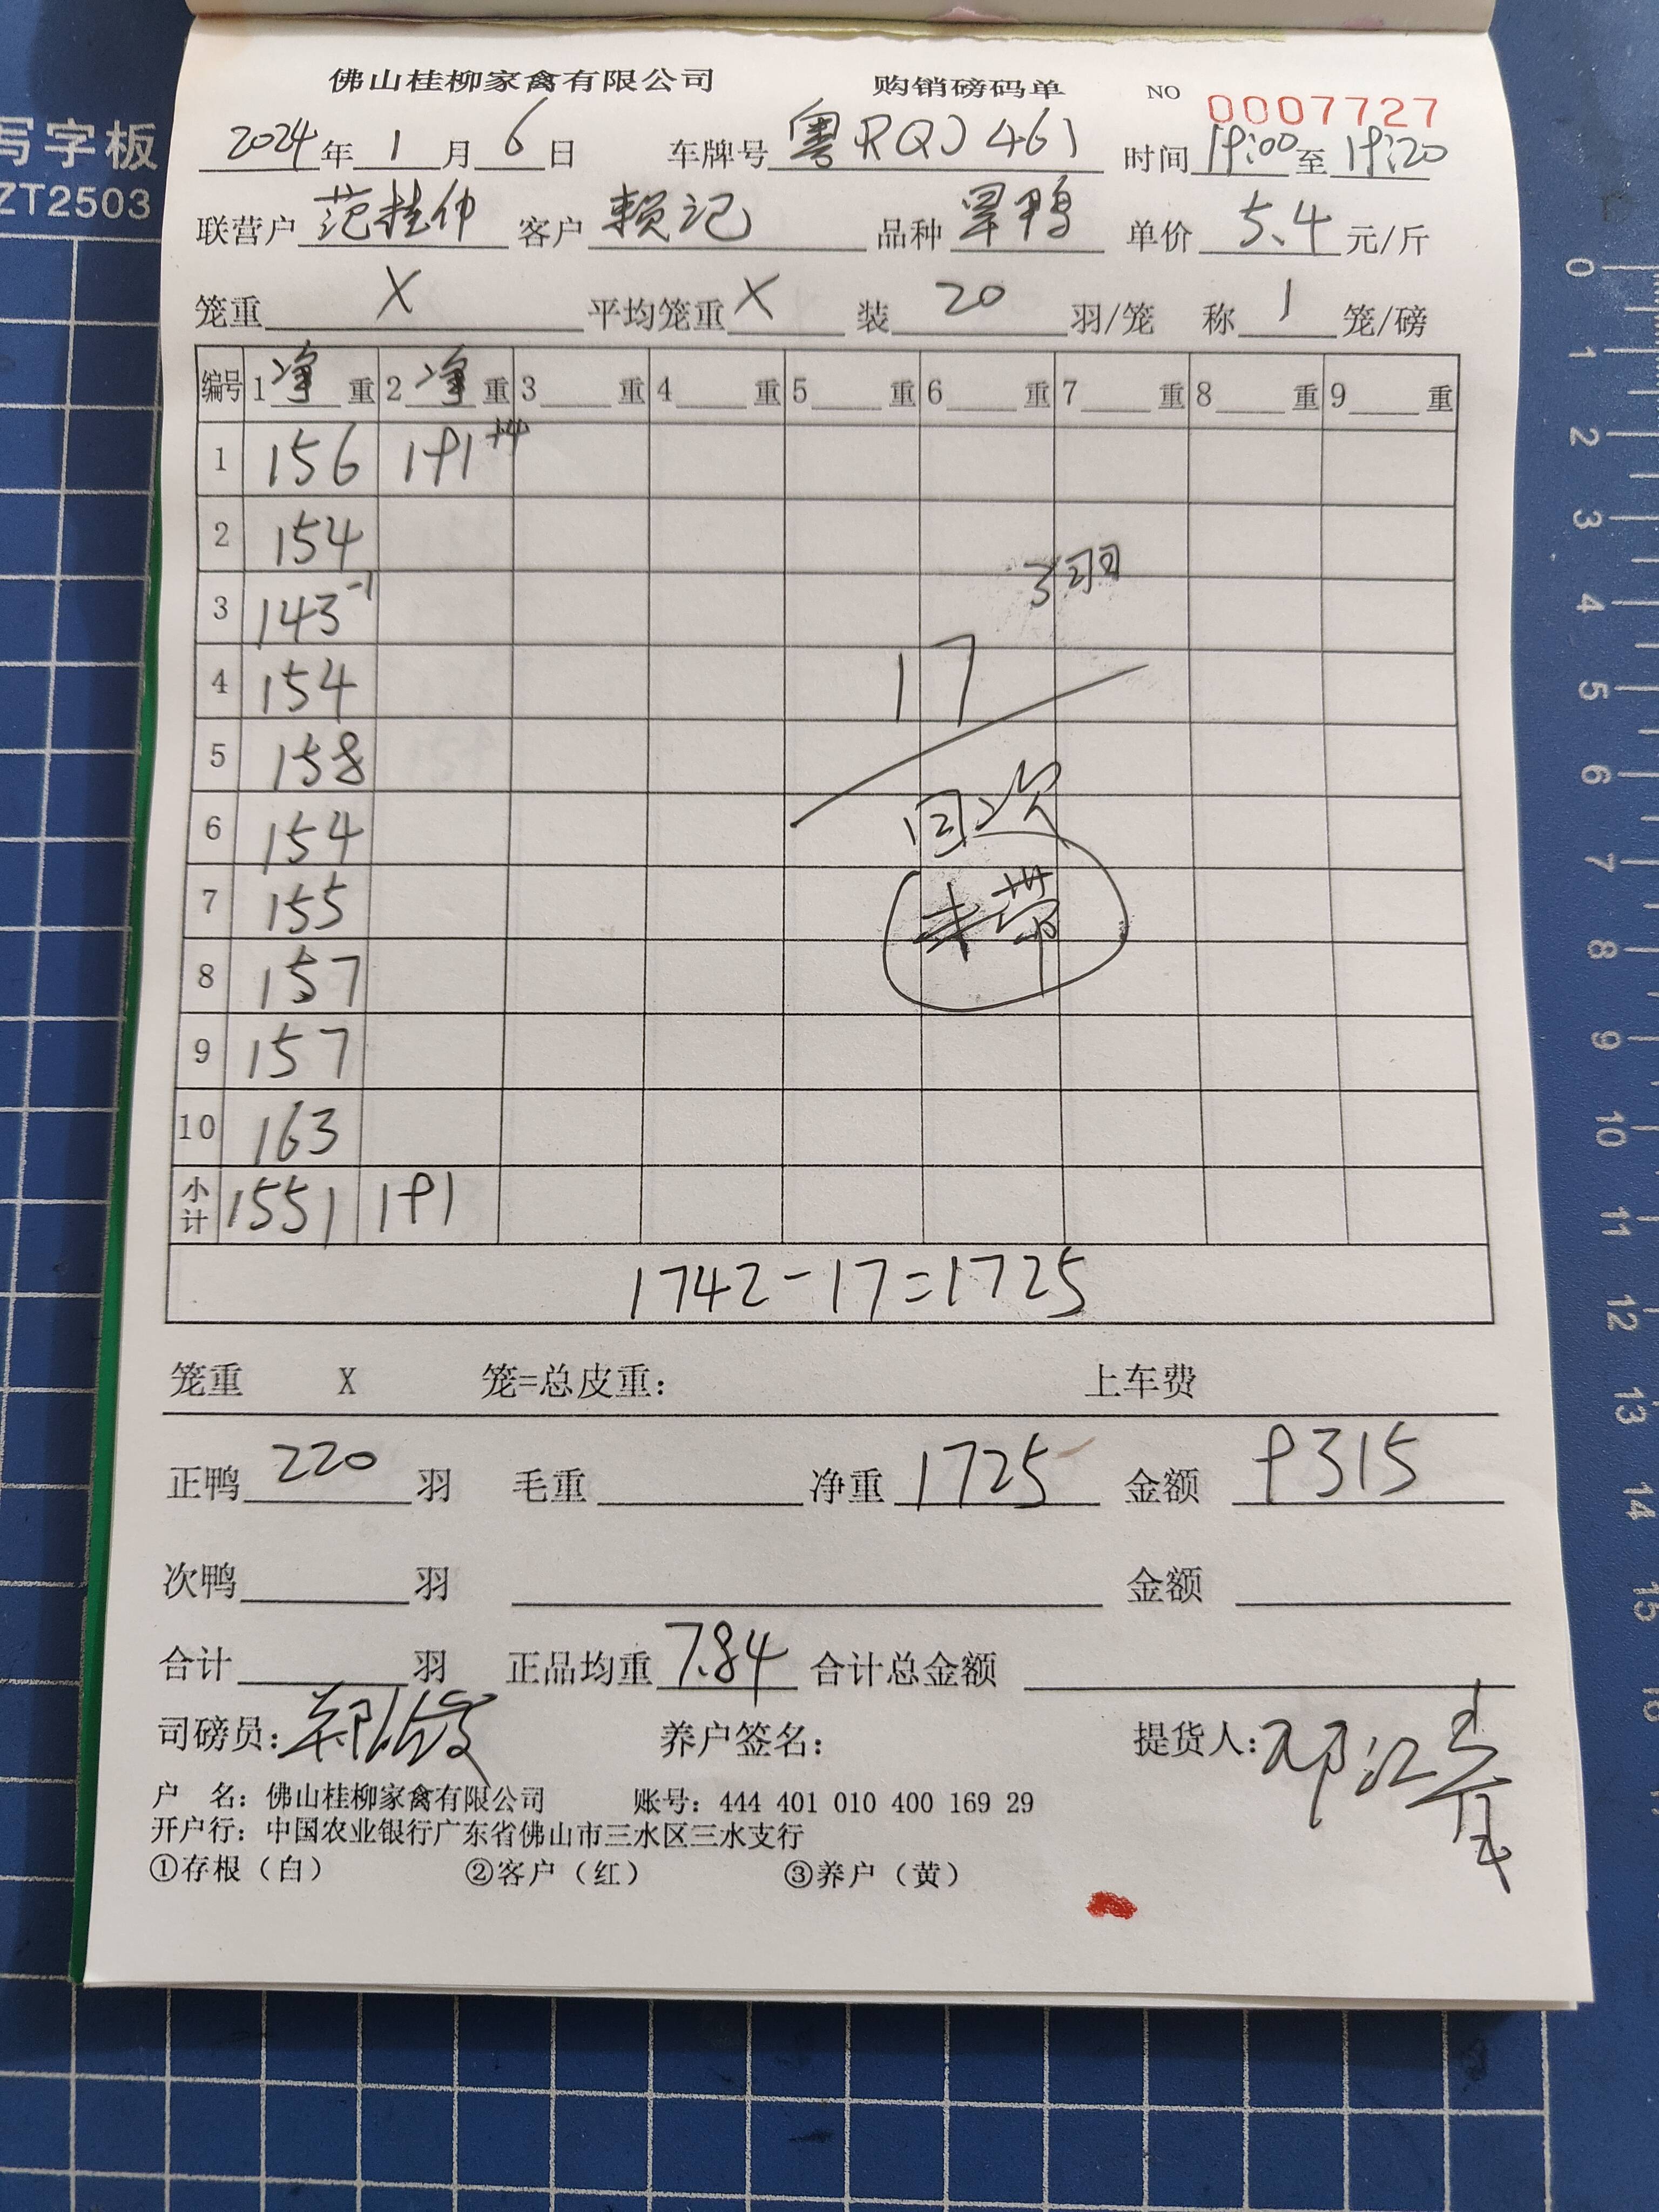 写字板
ZT2503
佛山桂柳家禽有限公司 购销磅码单 NO 0007727
2024年1月6日 车牌号 粤RQJ461 时间 19:00至19:20
联营户 范桂仲 客户 赖记 品种 旱鸭 单价 5.4 元/斤
笼重 X 平均笼重 X 装 20 羽/笼 称 1 笼/磅
编号 1净重 2净重 3重 4重 5重 6重 7重 8重 9重
1 156 191
2 154
3 143-1 3羽
4 154 17
5 158
6 154 回次
7 155 未带
8 157
9 157
10 163
小计 1551 191
1742-17=1725
笼重 X 笼=总皮重： 上车费
正鸭 220 羽 毛重 净重 1725 金额 9315
次鸭 羽 金额
合计 羽 正品均重 7.84 合计总金额
司磅员： 养户签名： 提货人：
户 名：佛山桂柳家禽有限公司 账号：444 401 010 400 169 29
开户行：中国农业银行广东省佛山市三水区三水支行
①存根（白） ②客户（红） ③养户（黄）
0
1
2
3
4
5
6
7
8
9
10
11
12
13
14
15
16